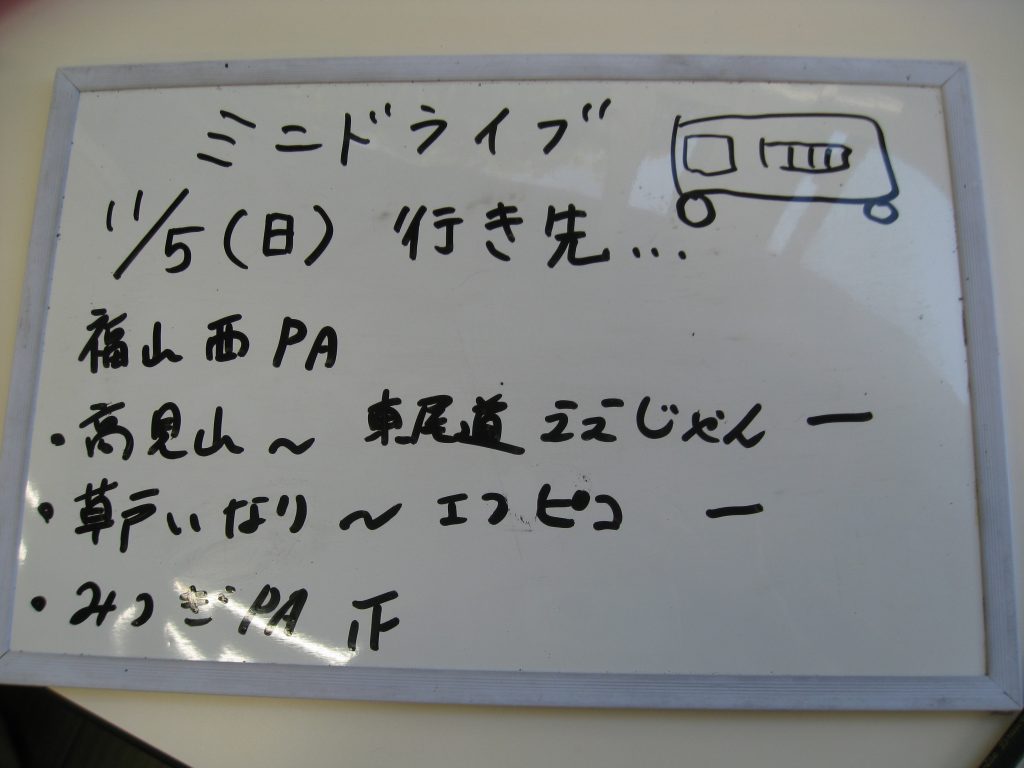 ミニドライブ
11/5(日) 行き先...
福山西PA
・高見山〜東尾道ええじゃん 一
・草戸いなり〜エフピコ 一
・みつぎPA 正